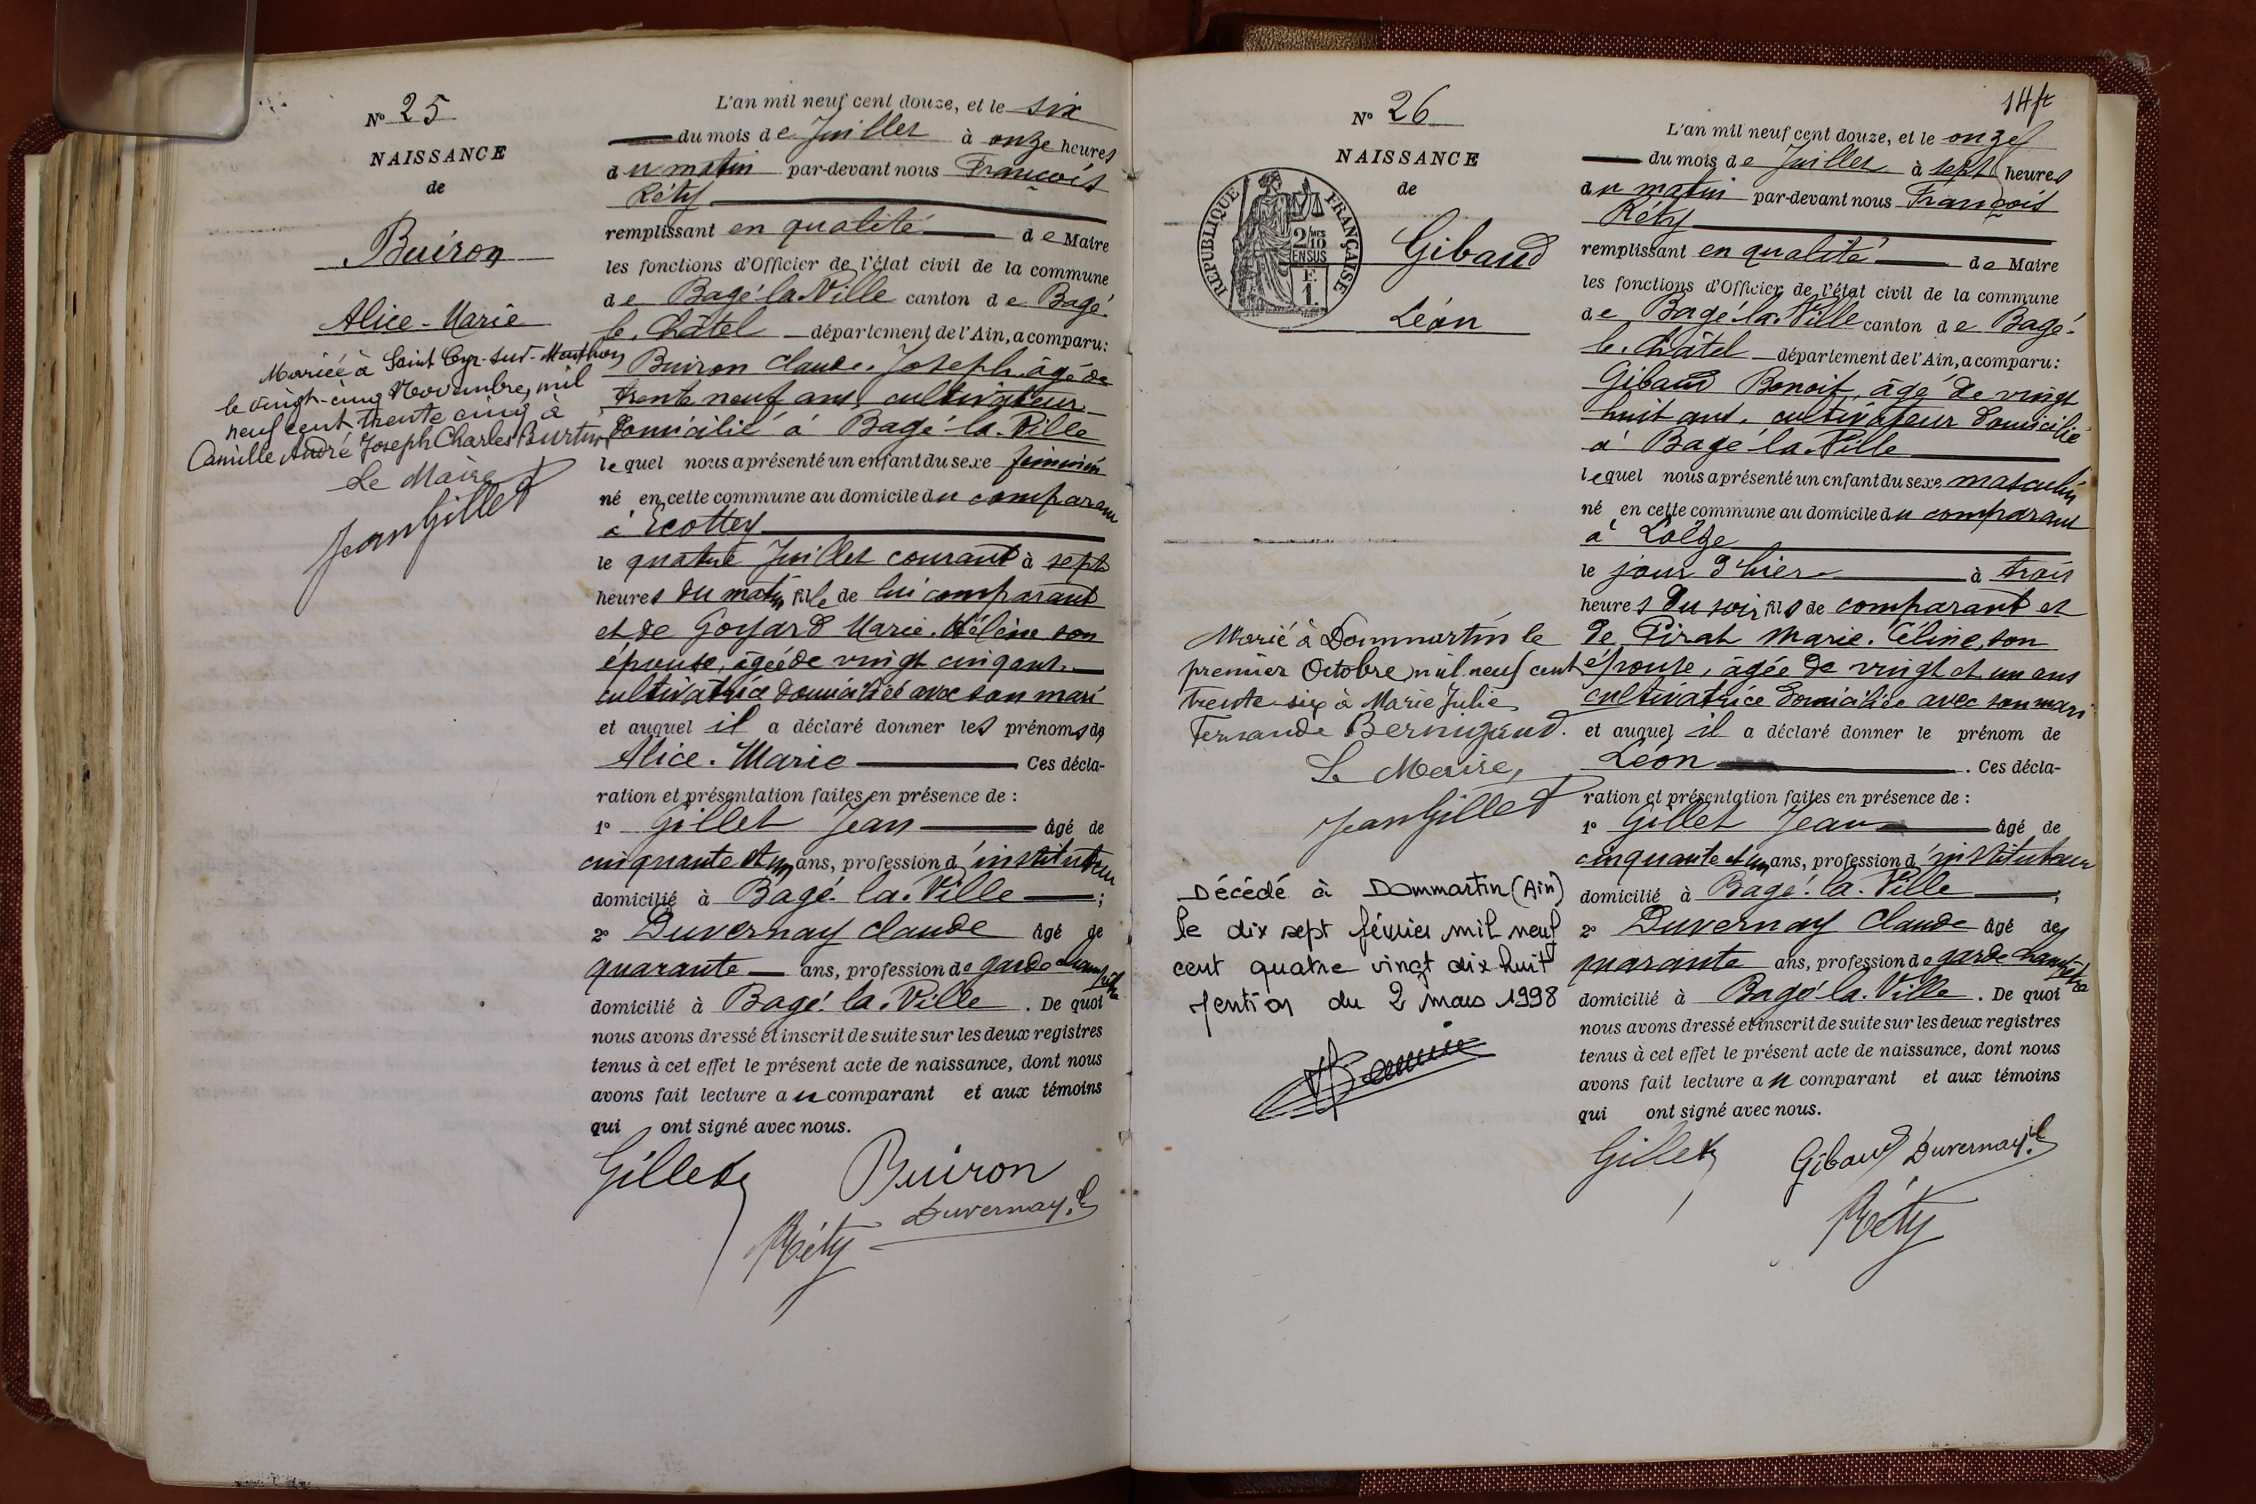 N° 25
NAISSANCE
de
Buiron
Alice-Marie
Mariée à Saint Cyr-sur-Menthon
le vingt-cinq Novembre, mil
neuf cent trente cinq à
Camille André Joseph Charles Burtin
Le Maire
Jean Gillet
L'an mil neuf cent douze, et le six
du mois de Juillet à onze heures
du matin par-devant nous François
Réty
remplissant en qualité de Maire
les fonctions d'Officier de l'état civil de la commune
de Bagé-la-Ville canton de Bagé-
le-Châtel département de l'Ain, a comparu:
Buiron Claude-Joseph, âgé de
trente neuf ans, cultivateur
domicilié à Bagé-la-Ville
lequel nous a présenté un enfant du sexe féminin
né en cette commune au domicile du comparant
à Ecottey
le quatre Juillet courant à sept
heures du matin fille de lui comparant
et de Goyard Marie-Hélène son
épouse, âgée de vingt cinq ans,
cultivatrice domiciliée avec son mari
et auquel il a déclaré donner les prénoms de
Alice-Marie Ces décla-
ration et présentation faites en présence de :
1° Gillet Jean âgé de
cinquante et un ans, profession d'instituteur
domicilié à Bagé-la-Ville ;
2° Duvernay Claude âgé de
quarante ans, profession de garde champêtre
domicilié à Bagé-la-Ville . De quoi
nous avons dressé et inscrit de suite sur les deux registres
tenus à cet effet le présent acte de naissance, dont nous
avons fait lecture au comparant et aux témoins
qui ont signé avec nous.
Gillet Buiron
Duvernay C
Réty
14
N° 26
NAISSANCE
de
RÉPUBLIQUE FRANÇAISE
2/10 EN SUS
F
1.
Gibaud
Léon
Marié à Dommartin le
premier Octobre mil neuf cent
trente-six à Marie Julie
Fernande Bernigaud.
Le Maire,
Jean Gillet
Décédé à Dommartin (Ain)
le dix sept février mil neuf
cent quatre vingt dix huit
Mention du 2 mars 1998
L'an mil neuf cent douze, et le onze
du mois de Juillet à sept heures
du matin par-devant nous François
Réty
remplissant en qualité de Maire
les fonctions d'Officier de l'état civil de la commune
de Bagé-la-Ville canton de Bagé-
le-Châtel département de l'Ain, a comparu:
Gibaud Benoit, âgé de vingt
huit ans, cultivateur domicilié
à Bagé-la-Ville
lequel nous a présenté un enfant du sexe masculin
né en cette commune au domicile du comparant
à
le jour d'hier à trois
heures du soir fils de comparant et
de Pirat Marie-Céline, son
épouse, âgée de vingt et un ans
cultivatrice domiciliée avec son mari
et auquel il a déclaré donner le prénom de
Léon . Ces décla-
ration et présentation faites en présence de :
1° Gillet Jean âgé de
cinquante et un ans, profession d'instituteur
domicilié à Bagé-la-Ville ;
2° Duvernay Claude âgé de
quarante ans, profession de garde champêtre
domicilié à Bagé-la-Ville . De quoi
nous avons dressé et inscrit de suite sur les deux registres
tenus à cet effet le présent acte de naissance, dont nous
avons fait lecture au comparant et aux témoins
qui ont signé avec nous.
Gillet Gibaud Duvernay C
Réty